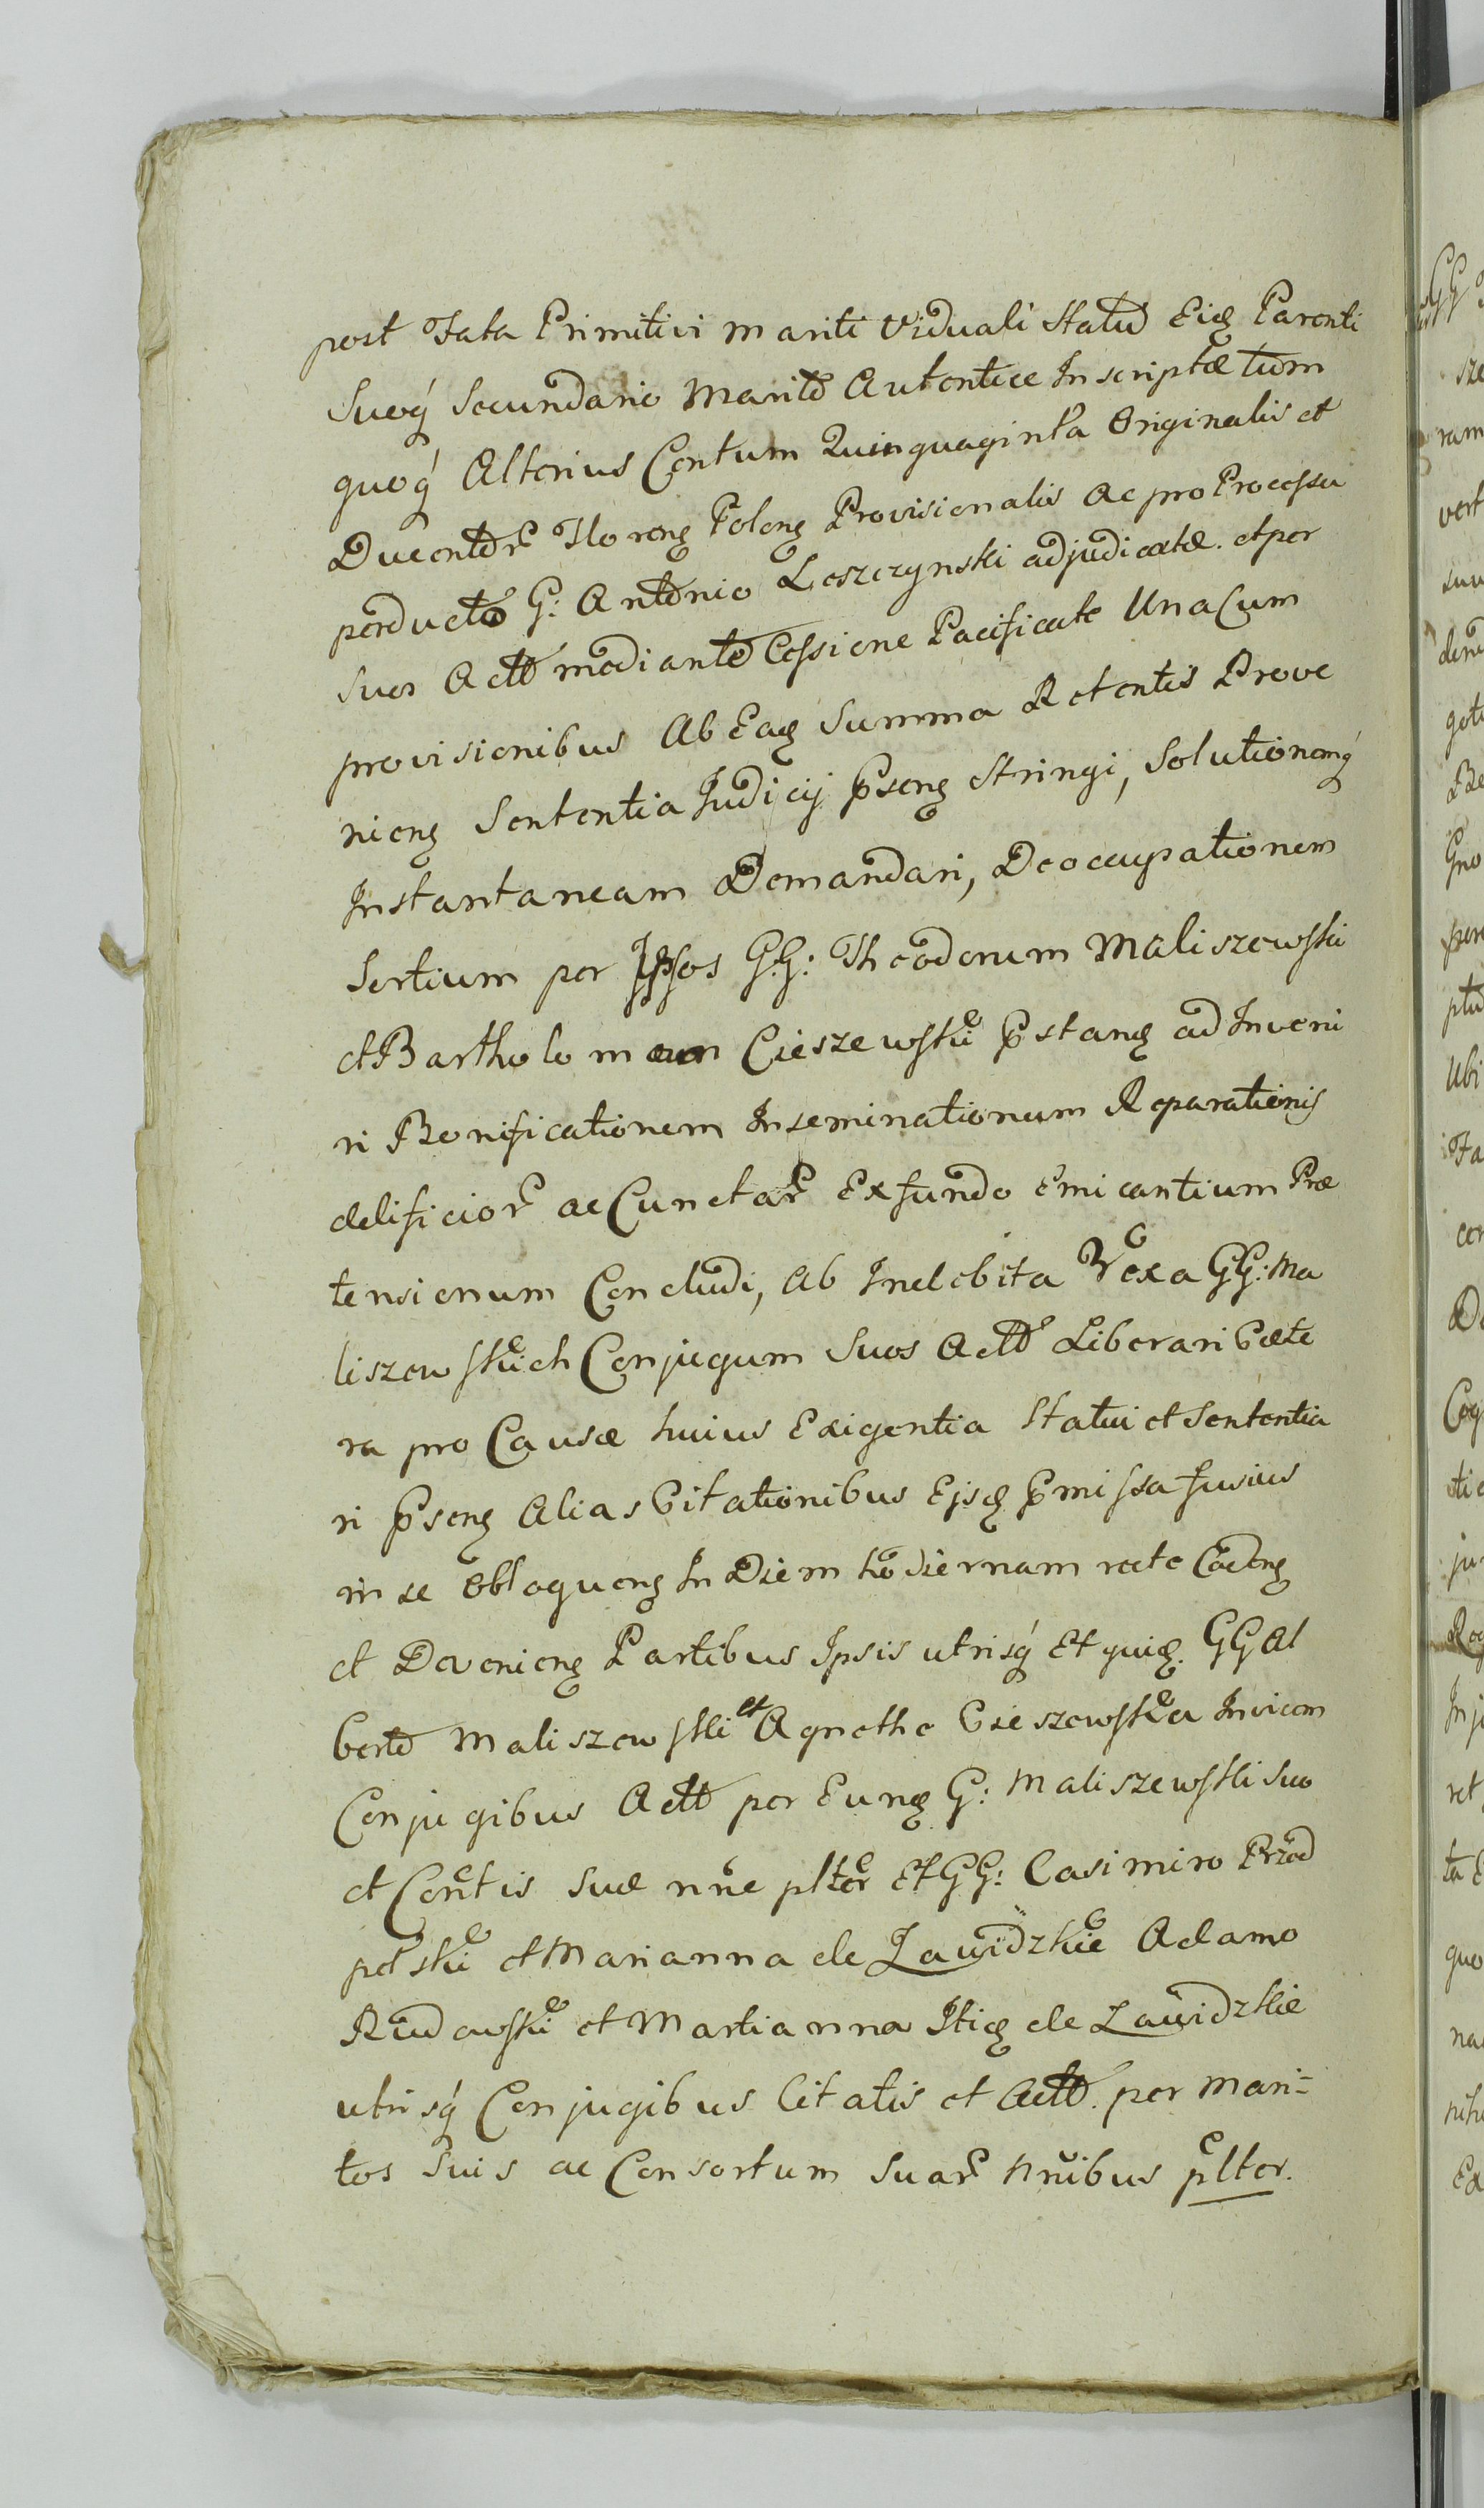 post Fata Primitivi mariti viduali Statu Eidę Parenti
Suoq́ Secundario Marito Autentice Inscriptæ tum
quoq́ Alterius Centum Quinquaginta Originalis et
Ducentor̃ Florenę Polonę Provisionalis ac pro Processu
perducto G: Antonio Leszczynski adjudicatæ. et per
Suos Actt mediante Cessione Pacificate Una Cum
provisionibus Ab Eadę Summa Retentis Prove
nienę Sententia Judicij Psenę Stringi, Solutionemq́
Instantaneam Demandari, Deoccupationem
Sortium per Ipsos GG: Theodorum Maliszewski
et Bartholomeum Cieszewski Pstanę ad Inveni
ri Bonificationem Inseminationum Reparationis
ædificior̃ ac Cunctar̃ Ex fundo emicantium Præ
tensionum Concludi, ab Indebita Vexa GG: Ma
liszewskich Conjugum Suos Actt Liberari Cæte
ra pro Causæ huius Exigentia Statui et Sententia
ri Psenę Alias Citationibus Ejsdę Pmissa fusius
in se obloquenę In Diem hodiernam recte Cadenę
et Devenienę Partibus Ipsis utrisq́ Et quidę. GG Al
berto Maliszewski et Agnethe Cieszewska Invicem
Conjugibus Actt per Eundę G: Maliszewski Suo
et Contis Suæ nne plter Et GG: Casimiro Przad
pelski et Marianna de Zawidzkie Adamo
Rudowski et Martianna Itidę de Zawidzkie
utrisq́ Conjugibus Citatis et Actt. per Mari=
tos Suis ac Consortum Suar̃ nnibus plter.